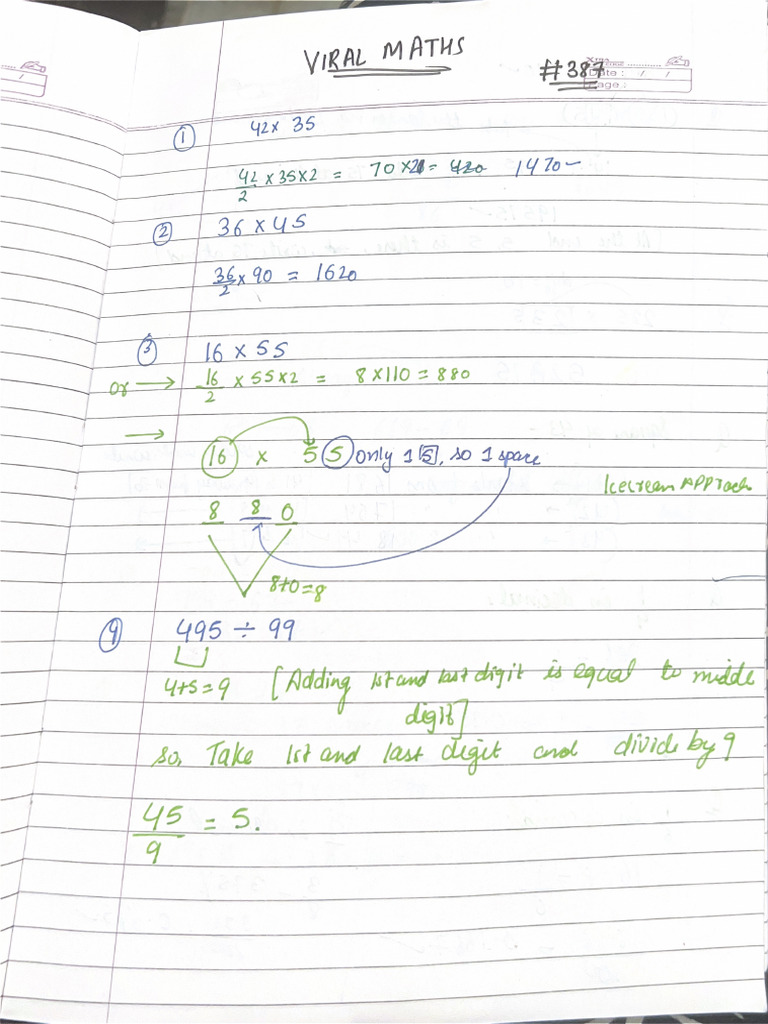 VIRAL MATHS
#387
Date : / /
Page :
① 42 x 35
42/2 x 35 x 2 = 70 x 21 = 420 1470
② 36 x 45
36/2 x 90 = 1620
③ 16 x 55
or → 16/2 x 55 x 2 = 8 x 110 = 880
→ 16 x 5 5 only 1 5, so 1 space
Icecream APProach
8 8 0
8+0=8
④ 495 ÷ 99
4+5=9 [Adding 1st and last digit is equal to middle
digit]
so, Take 1st and last digit and divide by 9
45/9 = 5.